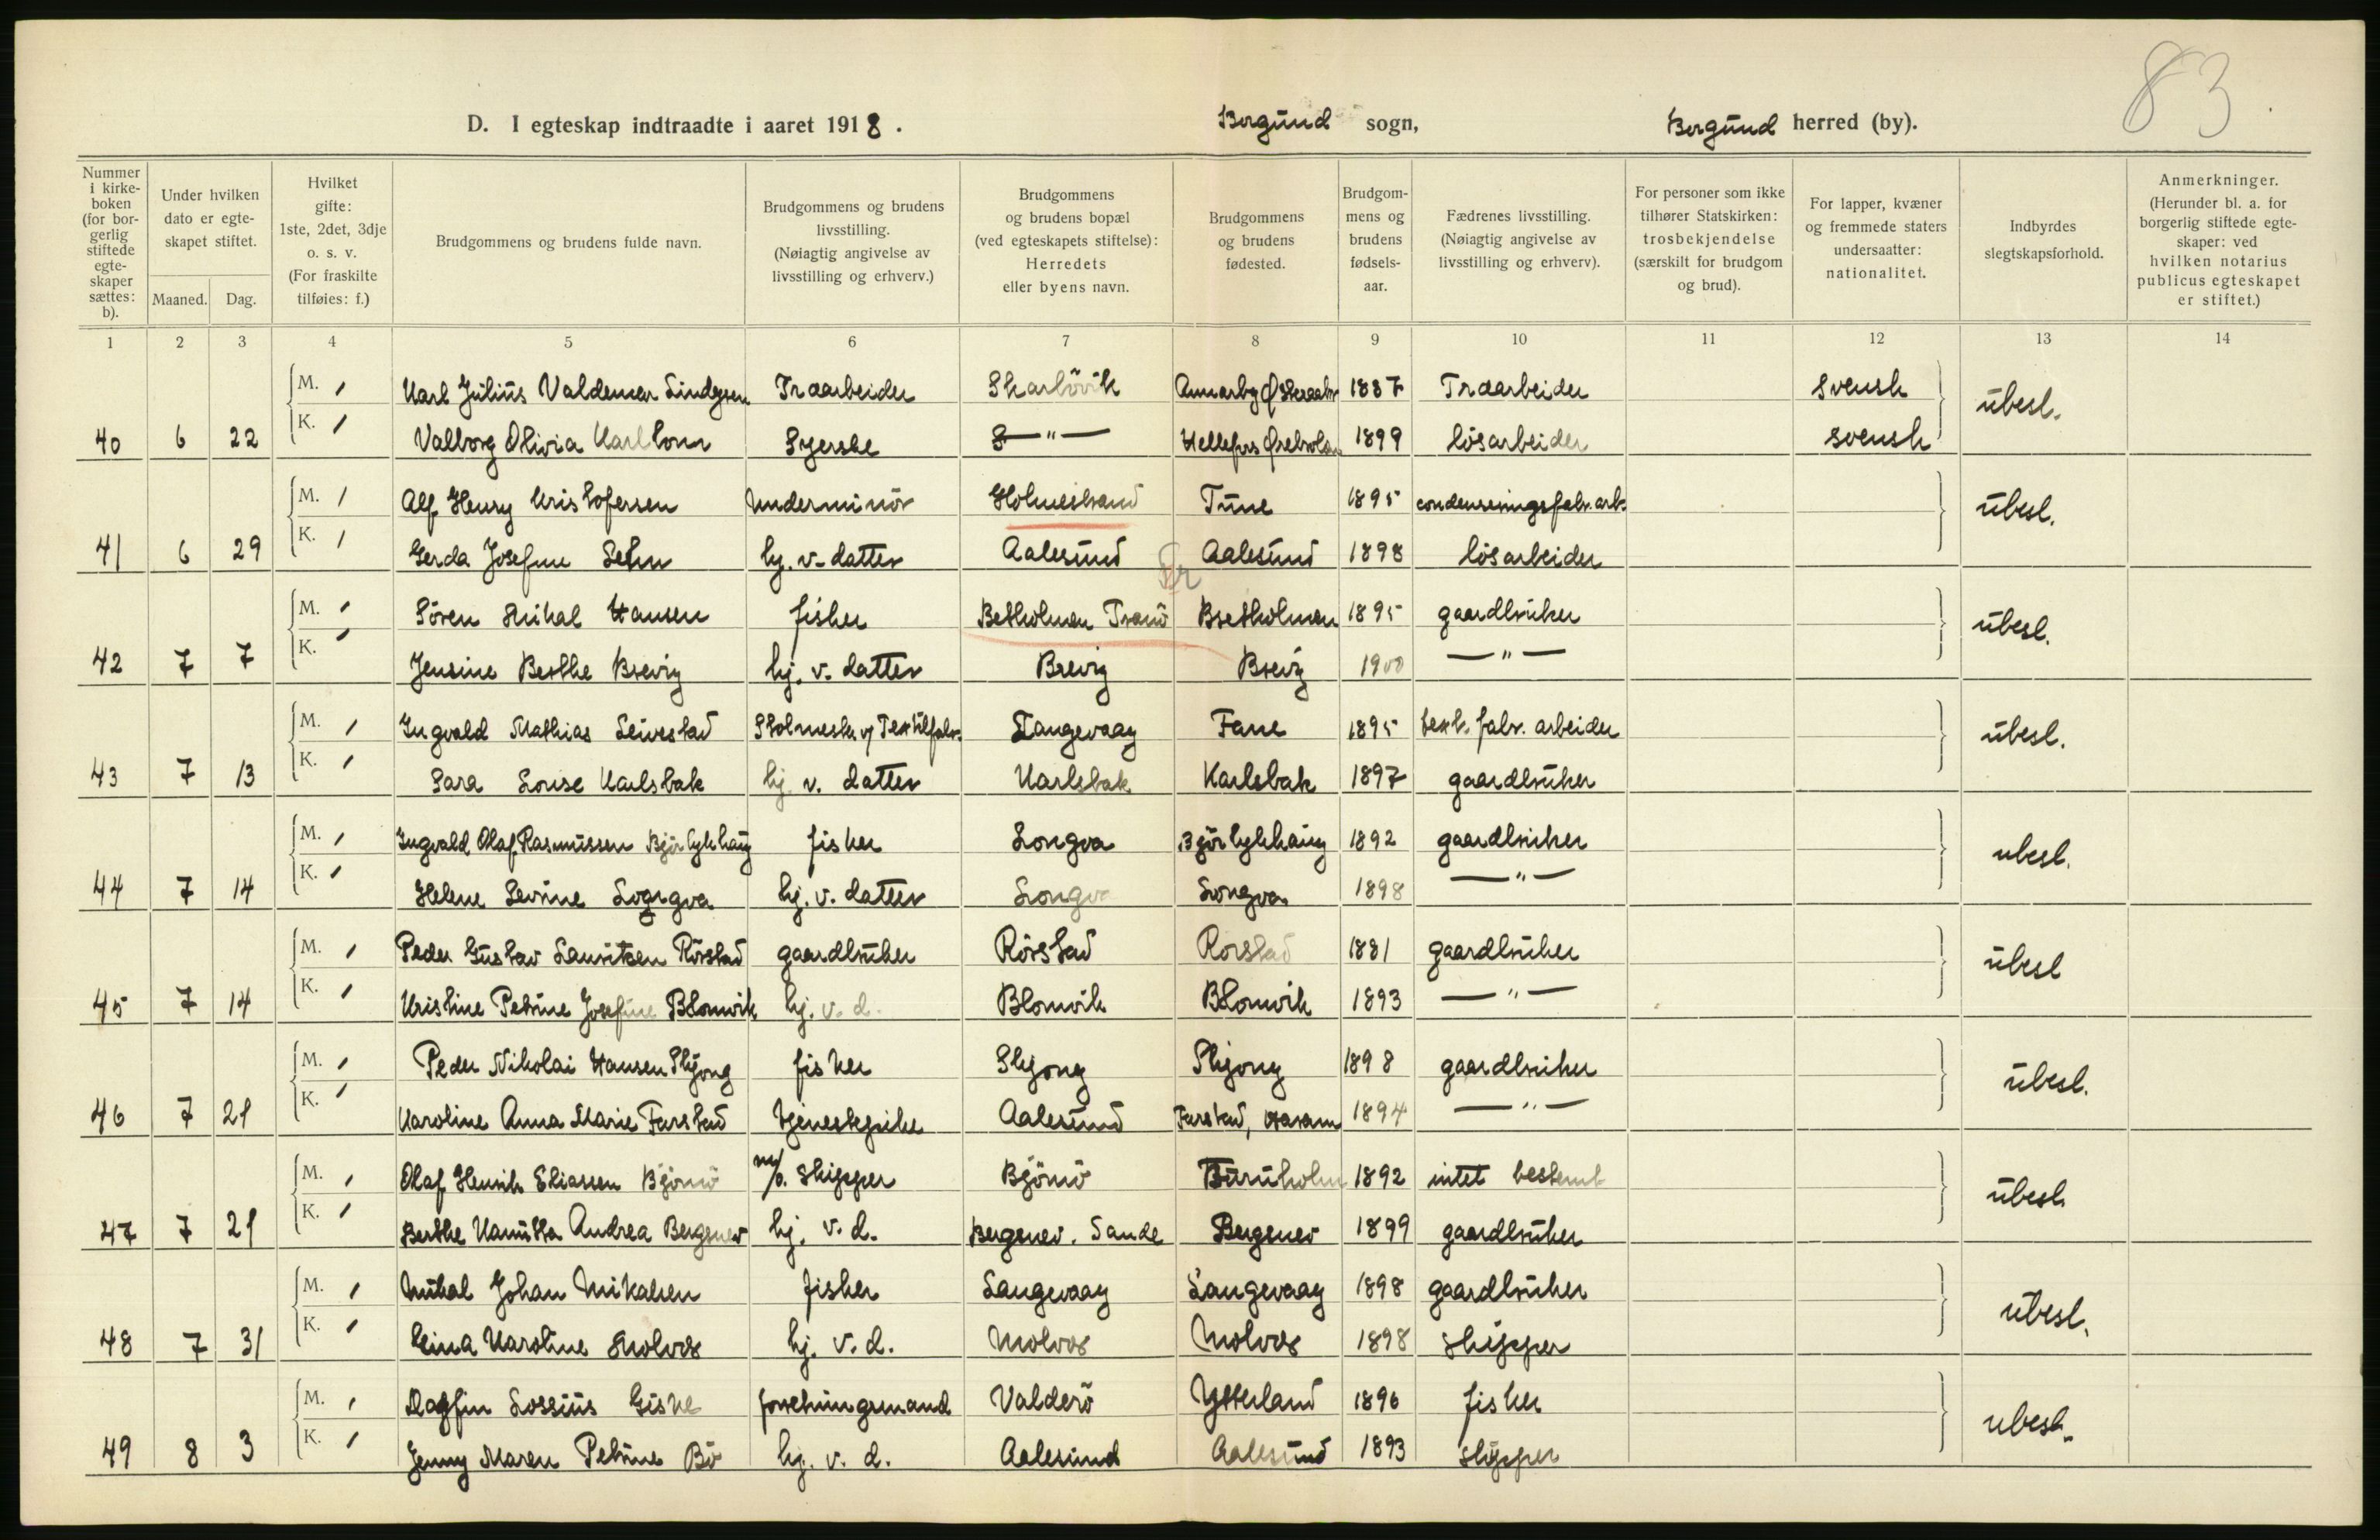 83
D. I egteskap indtraadte i aaret 1918. Borgund sogn, Borgund herred (by).
Nummer i kirkeboken (for borgerlig stiftede egteskaper sættes: b).
Under hvilken dato er egteskapet stiftet.
Maaned. Dag.
Hvilket gifte: 1ste, 2det, 3dje o. s. v. (For fraskilte tilføies: f.)
Brudgommens og brudens fulde navn.
Brudgommens og brudens livsstilling. (Nøiagtig angivelse av livsstilling og erhverv.)
Brudgommens og brudens bopæl (ved egteskapets stiftelse): Herredets eller byens navn.
Brudgommens og brudens fødested.
Brudgommens og brudens fødselsaar.
Fædrenes livsstilling. (Nøiagtig angivelse av livsstilling og erhverv).
For personer som ikke tilhører Statskirken: trosbekjendelse (særskilt for brudgom og brud).
For lapper, kvæner og fremmede staters undersaatter: nationalitet.
Indbyrdes slegtskapsforhold.
Anmerkninger. (Herunder bl. a. for borgerlig stiftede egteskaper: ved hvilken notarius publicus egteskapet er stiftet.)
1 2 3 4 5 6 7 8 9 10 11 12 13 14
M. / Karl Julius Valdemar Lindgren Træarbeider Skarbövik 1887 Træarbeider svensk
40 6 22 K. / Valborg Olivia Karlsson Syerske —"— Hellefors 1899 lösarbeider svensk ubesl.
M. / Alf Henry Kristofersen Underminör Holmestrand Tune 1895 condenseringsfabr. arb.
41 6 29 K. / Gerda Josefine Sehn hj. v. datter Aalesund Aalesund 1898 lösarbeider ubesl.
M. / Sören Mikal Hansen fisker Betholmen Tranö Bretholmen 1895 gaardbruker
42 7 7 K. / Jensine Berthe Brevig hj. v. datter Brevig Brevig 1900 —"— ubesl.
M. / Ingvald Mathias Leirestad Stolmester v/ Textilfabr. Langevaag Fane 1895 text. fabr. arbeider
43 7 13 K. / Sara Lovise Karlsbak hj. v. datter Karlsbak Karlsbak 1897 gaardbruker ubesl.
M. / Ingvald Olaf Rasmussen Björlykhaug fisker Longva Björlykhaug 1892 gaardbruker
44 7 14 K. / Helene Sevrine Longva hj. v. datter Longva Longva 1898 —"— ubesl.
M. / Peder Gustav Lauritsen Rörstad gaardbruker Rörstad Rörstad 1881 gaardbruker
45 7 14 K. / Kristine Petrine Josefine Blomvik hj. v. d. Blomvik Blomvik 1893 —"— ubesl
M. / Peder Nikolai Hansen Skjong fisker Skjong Skjong 1898 gaardbruker
46 7 21 K. / Karoline Anna Marie Farstad tjenestepike Aalesund Farstad, Haram 1894 —"— ubesl.
M. / Olaf Henrik Eliassen Björnö m/b. skipper Björnö Buruholm 1892 intet bestemt
47 7 21 K. / Berthe Andrea Bergenev hj. v. d. Bergenev. Sande Bergenev 1899 gaardbruker ubesl.
M. / Mikal Johan Mikalsen fisker Langevaag Langevaag 1898 gaardbruker
48 7 31 K. / Gina Karoline Molvær hj. v. d. Molvær Molvær 1898 skipper ubesl.
M. / Dagfin Lossius Giske forretningsmand Valderö Ytterland 1896 fisker
49 8 3 K. / Jenny Maren Petrine Bö hj. v. d. Aalesund Aalesund 1893 skipper ubesl.